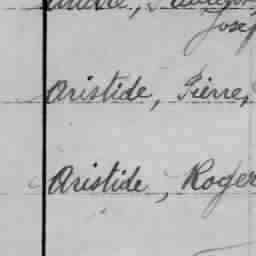 Josep
Aristide, Pierre,
Aristide, Roger